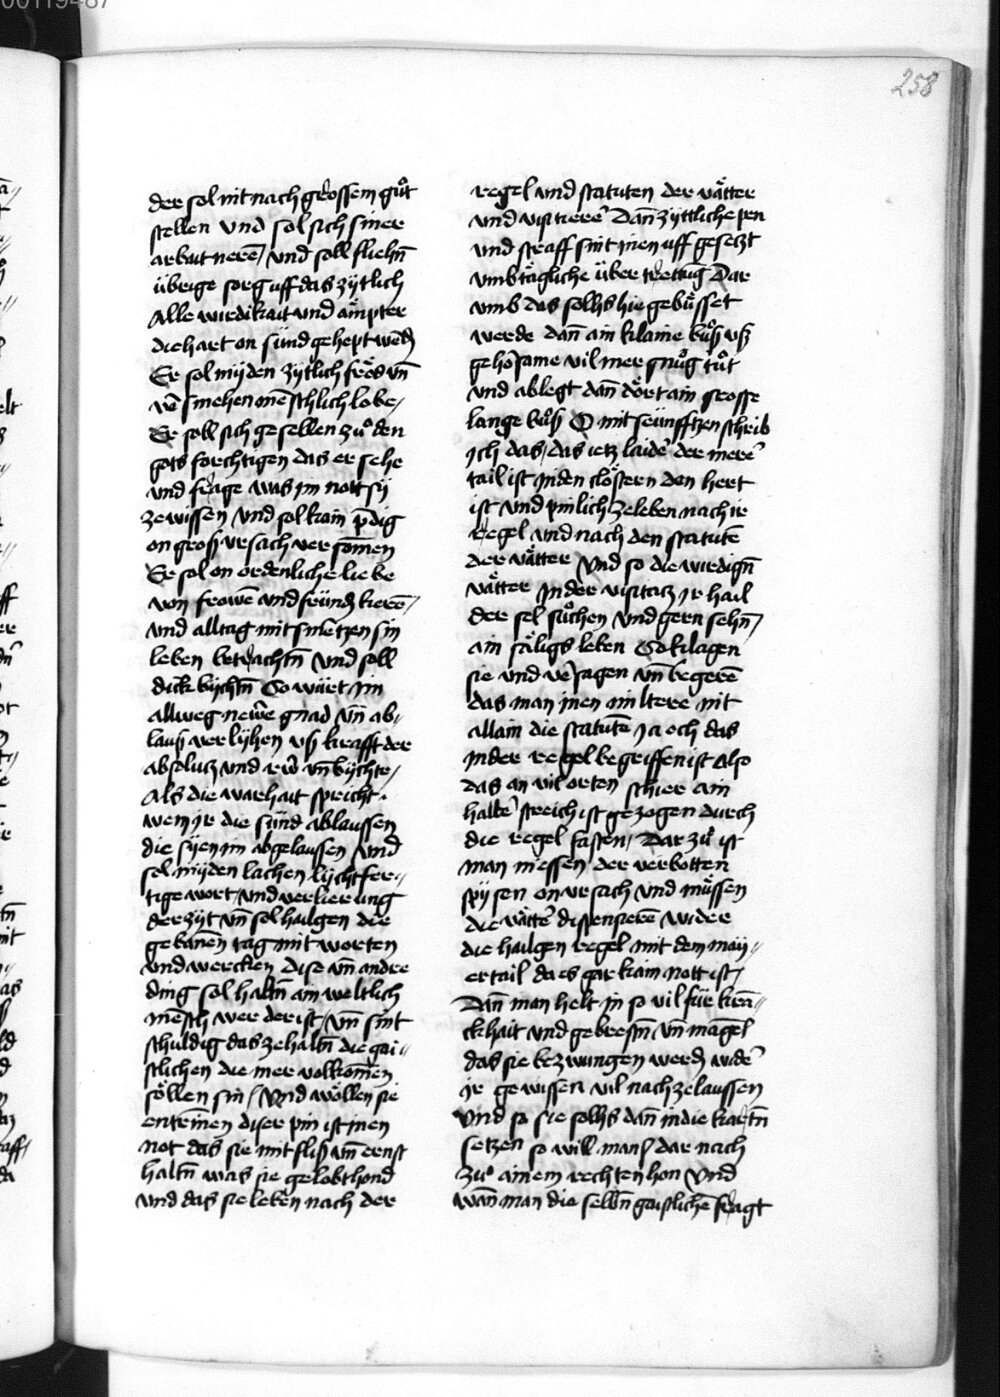 00119487
258
der sol nit nach grossem guͦt
stellen vnd sol sich siner
arbait nerē / vnd soll fliehn̄
übrige sorg vff das zÿtlich
Alle wirdikait vnd aͤmpter
die hart on sünd gehept werdē
Er sol mÿden zÿtlich froͤd vn̄
smehen mēschlich lobe /
Er soll sich gesellen zuͦ den
gots forchtigen das er sehe
vnd frage was jm nott sÿ
ze wissen vnd sol kain p̄dig
on groß vrsach versom̄en
Er sol on ordenliche liebe
von frowē vnd fründē kerē /
vnd alltag mit smertzen sin
leben betrachtn̄ vnd soll
dick bÿchtn̄ So wirt jm
allweg newe gnad vn̄ ab /
lauß verlÿhen vß krafft der
absolutz vnd rw̄ vn̄ bÿchte /
Als die warhait spricht .
wem jr die sünd ablaussen
die sÿen jm abgelaussen vnd
sol mÿden lachen lÿchtfer //
tige wort / vnd verlierung
der zÿt vn̄ sol hailgen die
gebanen tag mit worten
vnd wercken dise vn̄ andre
ding sol haltn̄ ain weltlich
mēsch wer der ist / vn̄ sint
schuldig das ze haltn̄ die gai //
stlichen die mer volkom̄en
soͤllen sin / vnd woͤllen sie
entrin̄en diser pin ist jnen
not das sie mit fliß vn̄ ernst
haltn̄ was sie gelobt hond
vnd das sie leben nach der
regel vnd statuten der vaͤtter
vnd visitierer Dan̄ zÿttliche pen
vnd straff sint jnen vff gesetzt
vmb taͤgliche übertrettung Dar
vmb das sollhs hie gebuͤsset
werde dan̄ ain klaine buͦß vß
gehorsame vil mer gnuͦg tuͦt
vnd ablegt dan̄ doͤrt ain grosse
lange buͦß O mit seünfftzen schrib
ich das / das ietz laider der merer
tail ist jn den cloͤstern den hert
ist vnd pinlich ze leben nach ir
regel vnd nach den statutē
der vaͤtter Vnd so die wirdign̄
vaͤtter jn der visitatz jr hail
der sel suͦchen vnd gern sehn̄ /
ain saͤligs leben So klagen
sie vnd versagen vn̄ begerē
das man jnen miltere nit
allain die statutē ja och das
jn der regel begriffen ist also
das an vil orten schier ain
halber streich ist gezogen durch
die regel fasten / Dar zuͦ ist
man niessen der verbotten
spÿsen on vrsach vnd muͤssen
die vaͤtter dispensierē wider
die hailgen regel mit dem maÿ //
ertail da es gar kain nott ist /
Dan̄ man helt jn so vil für kra //
ckhait vnd gebresn̄ vn̄ mangel
das sie bezwungen werdē wider
jr gewissen vil nach ze laussen
Vnd so sie sollhs dan̄ in die kartn̄
setzen so will man dar nach
zuͦ ainem rechten hon vnd
wan̄ man die selbn̄ gaistlichē fragt